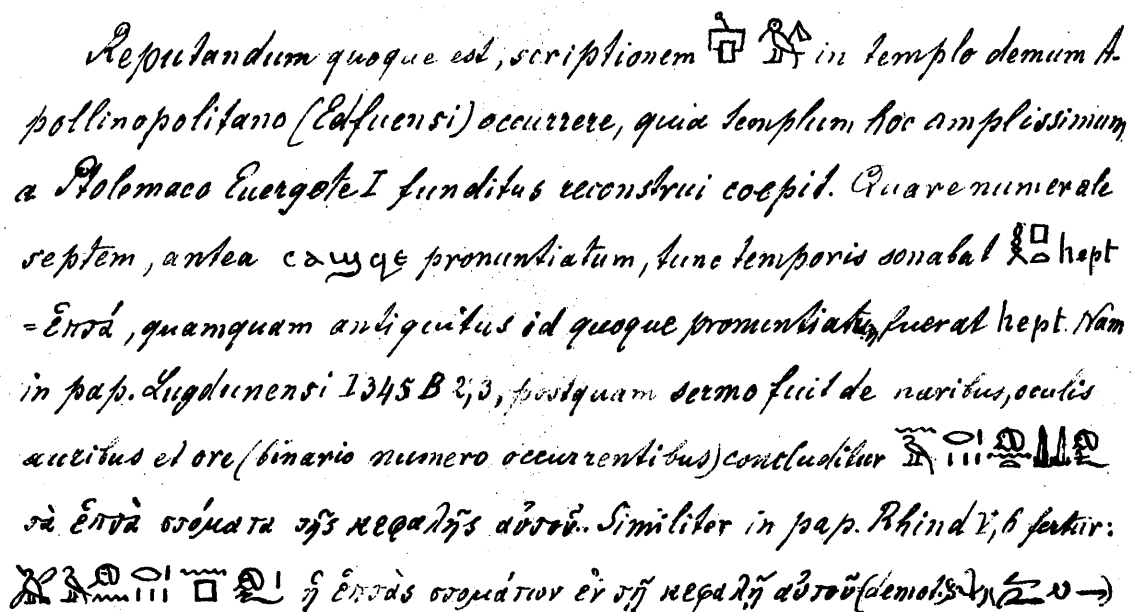 Reputandum quoque est, scriptionem in templo demum A-
pollinopolitano (Edfuensi) occurrere, quia templum hoc amplissimum
a Ptolemaeo Euergete I funditus reconstrui coepit. Quare numerale
septem, antea ⲥⲁϣϥⲉ pronuntiatum, tunc temporis sonabat hept
= ἑπτά, quamquam antiquitus id quoque pronuntiatum fuerat hept. Nam
in pap. Lugdunensi I 345 B 2,3, postquam sermo fuit de naribus, oculis
auribus et ore (binario numero occurrentibus) concluditur
τὰ ἑπτὰ στόματα τῆς κεφαλῆς αὐτοῦ. Similiter in pap. Rhind V, 6 fertur:
ἡ ἑπτὰς στομάτων ἐν τῇ κεφαλῇ αὐτοῦ (demot.